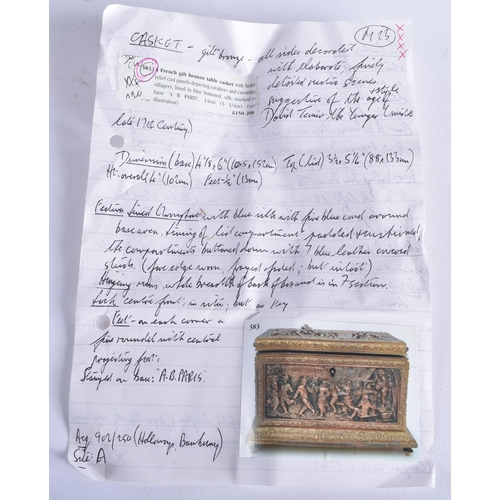 CASKET - gilt bronze - all sides decorated
M23
with elaborate, finely
detailed rustic scenes
suggestive of the style
of the age of
David Teniers the Younger
383 A French gilt bronze table casket with heavy
relief cast panels depicting cavaliers and carousing
villagers, lined in blue buttoned silk, marked to
base A B PARIS
illustration)
£150-200
Late 19th Century)
Dimensions (base) 4⅛ x 6" (10.5 x 15.2cm) Top (lid) 3½ x 5¼" (8.8 x 13.3cm)
Ht: overall 4" (10.2cm) Feet - ½" (13mm)
Features: Lined throughout with blue silk with fine blue cord around
base area. Lining of lid compartment padded & cushioned
the compartments buttoned down with 7 blue leather covered
studs. (fine edge worn, frayed, faded; but intact)
Hinging runs whole breadth of back of
in 7 sections.
Lock centre front: in situ; but no key
Feet - on each corner a
fine roundel with central
projecting foot:
Stamped on base: A.B. PARIS.
383
Acq. 902/250 (Holloways, Banbury)
Site: A